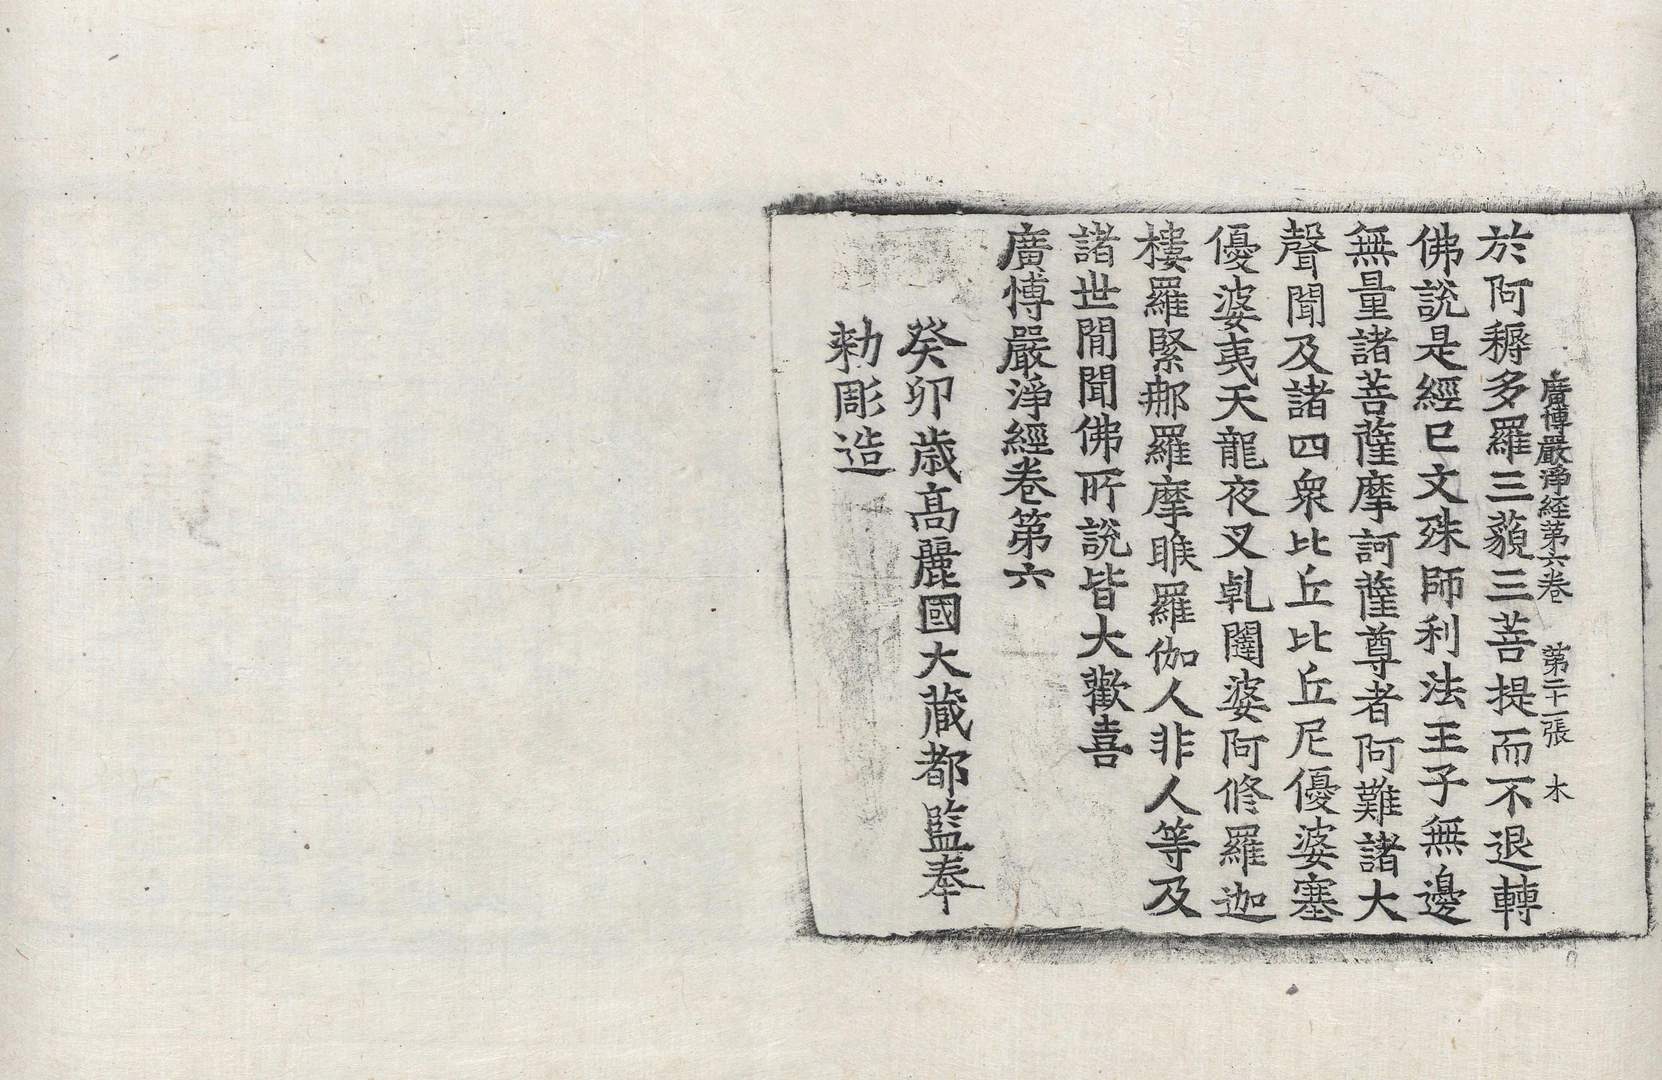 廣博嚴淨経第六卷　第二十一張　木
於阿耨多羅三藐三菩提而不退轉
佛說是經已文殊師利法王子無邊
無量諸菩薩摩訶薩尊者阿難諸大
聲聞及諸四衆比丘比丘尼優婆塞
優婆夷天龍夜叉乹闥婆阿脩羅迦
樓羅緊那羅摩睺羅伽人非人等及
諸世閒聞佛所說皆大歡喜
廣博嚴淨經卷第六
癸卯歳高麗國大藏都監奉
勑彫造